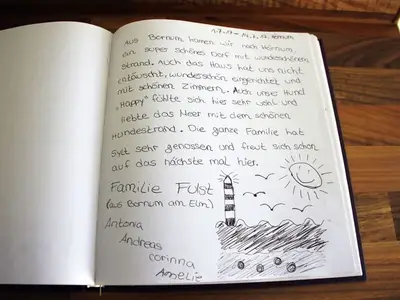 1.7.17 - 14.7.17 Hörnum
Aus Bornum kamen wir nach Hörnum,
ein super schönes Dorf mit wunderschönem
Strand. Auch das Haus hat uns nicht
entäuscht, wunderschön eingerichtet und
mit schönen Zimmern. Auch unser Hund
„Happy" fühlte sich hier sehr wohl und
liebte das Meer mit dem schönen
Hundestrand. Die ganze Familie hat
Sylt sehr genossen und freut sich schon
auf das nächste mal hier.
Familie Fulst
(aus Bornum am Elm)
Antonia
Andreas
Corinna
Amelie